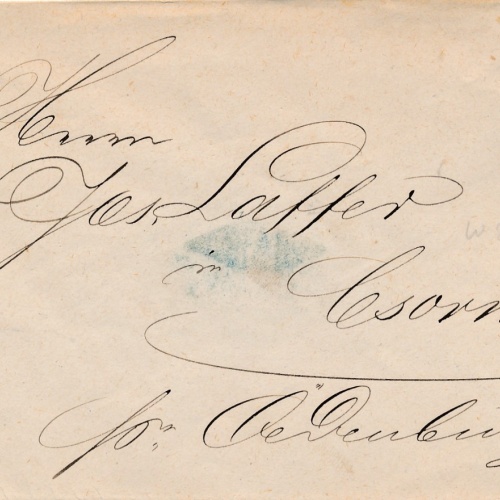 Herrn
Jos. Laffer
in Csorn
pr Oedenburg